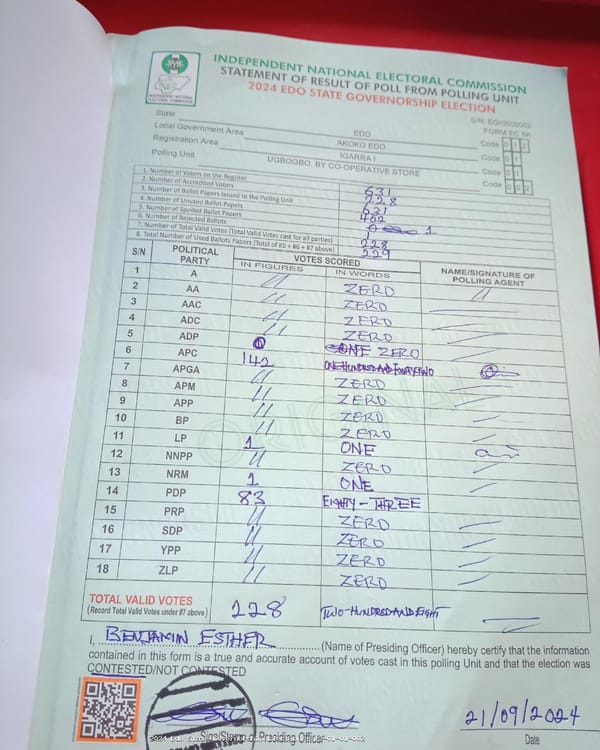 INDEPENDENT NATIONAL ELECTORAL COMMISSION
STATEMENT OF RESULT OF POLL FROM POLLING UNIT
2024 EDO STATE GOVERNORSHIP ELECTION
INEC
INDEPENDENT NATIONAL ELECTORAL COMMISSION
FORM EC 8A
State EDO Code 0 1 2
Local Government Area AKOKO EDO Code 0 1
Registration Area IGARRA I Code 0 1
Polling Unit UGBOGBO, BY CO-OPERATIVE STORE Code 0 0 2
1. Number of Voters on the Register 631
2. Number of Accredited Voters 228
3. Number of Ballot Papers Issued to the Polling Unit 631
4. Number of Unused Ballot Papers 402
5. Number of Spoiled Ballot Papers
6. Number of Rejected Ballots 1
7. Number of Total Valid Votes (Total Valid Votes cast for all parties) 228
8. Total Number of Used Ballots Papers (Total of #5 + #6 + #7 above) 229
S/N POLITICAL PARTY VOTES SCORED NAME/SIGNATURE OF POLLING AGENT
IN FIGURES IN WORDS
1 A ZERO
2 AA ZERO
3 AAC ZERO
4 ADC ZERO
5 ADP ONE ZERO
6 APC 142 ONE HUNDRED AND FOURTY TWO
7 APGA ZERO
8 APM ZERO
9 APP ZERO
10 BP ZERO
11 LP 1 ONE
12 NNPP ZERO
13 NRM 1 ONE
14 PDP 83 EIGHTY-THREE
15 PRP ZERO
16 SDP ZERO
17 YPP ZERO
18 ZLP ZERO
TOTAL VALID VOTES 228 TWO-HUNDRED AND EIGHT
(Record Total Valid Votes under #7 above)
I, BENJAMIN ESTHER (Name of Presiding Officer) hereby certify that the information
contained in this form is a true and accurate account of votes cast in this polling Unit and that the election was
CONTESTED/NOT CONTESTED
21/09/2024
Presiding Officer
Date